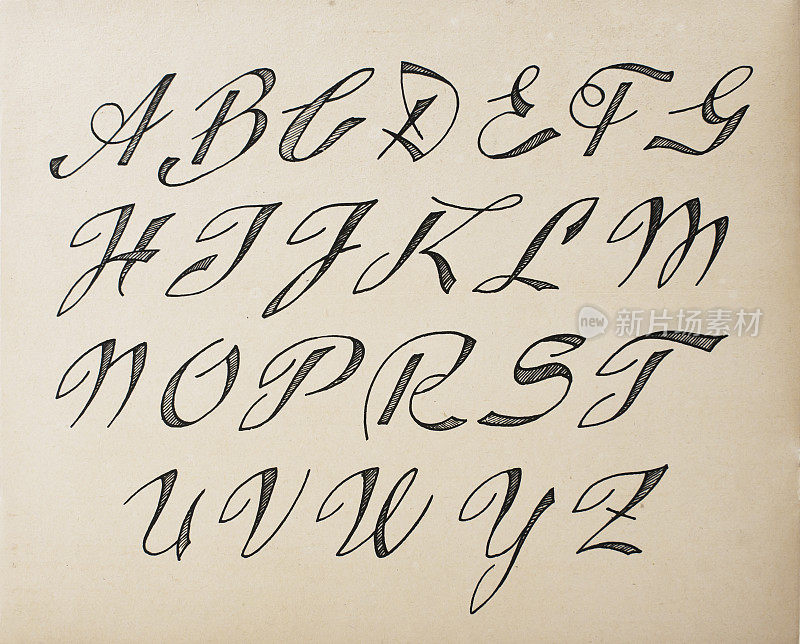 A B C D E F G
H I J K L M
N O P R S T
U V W Y Z
new 新片场素材